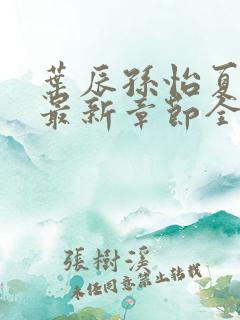 葉辰孫怡夏
最新章節全
張樹溪
未经同意禁止转载